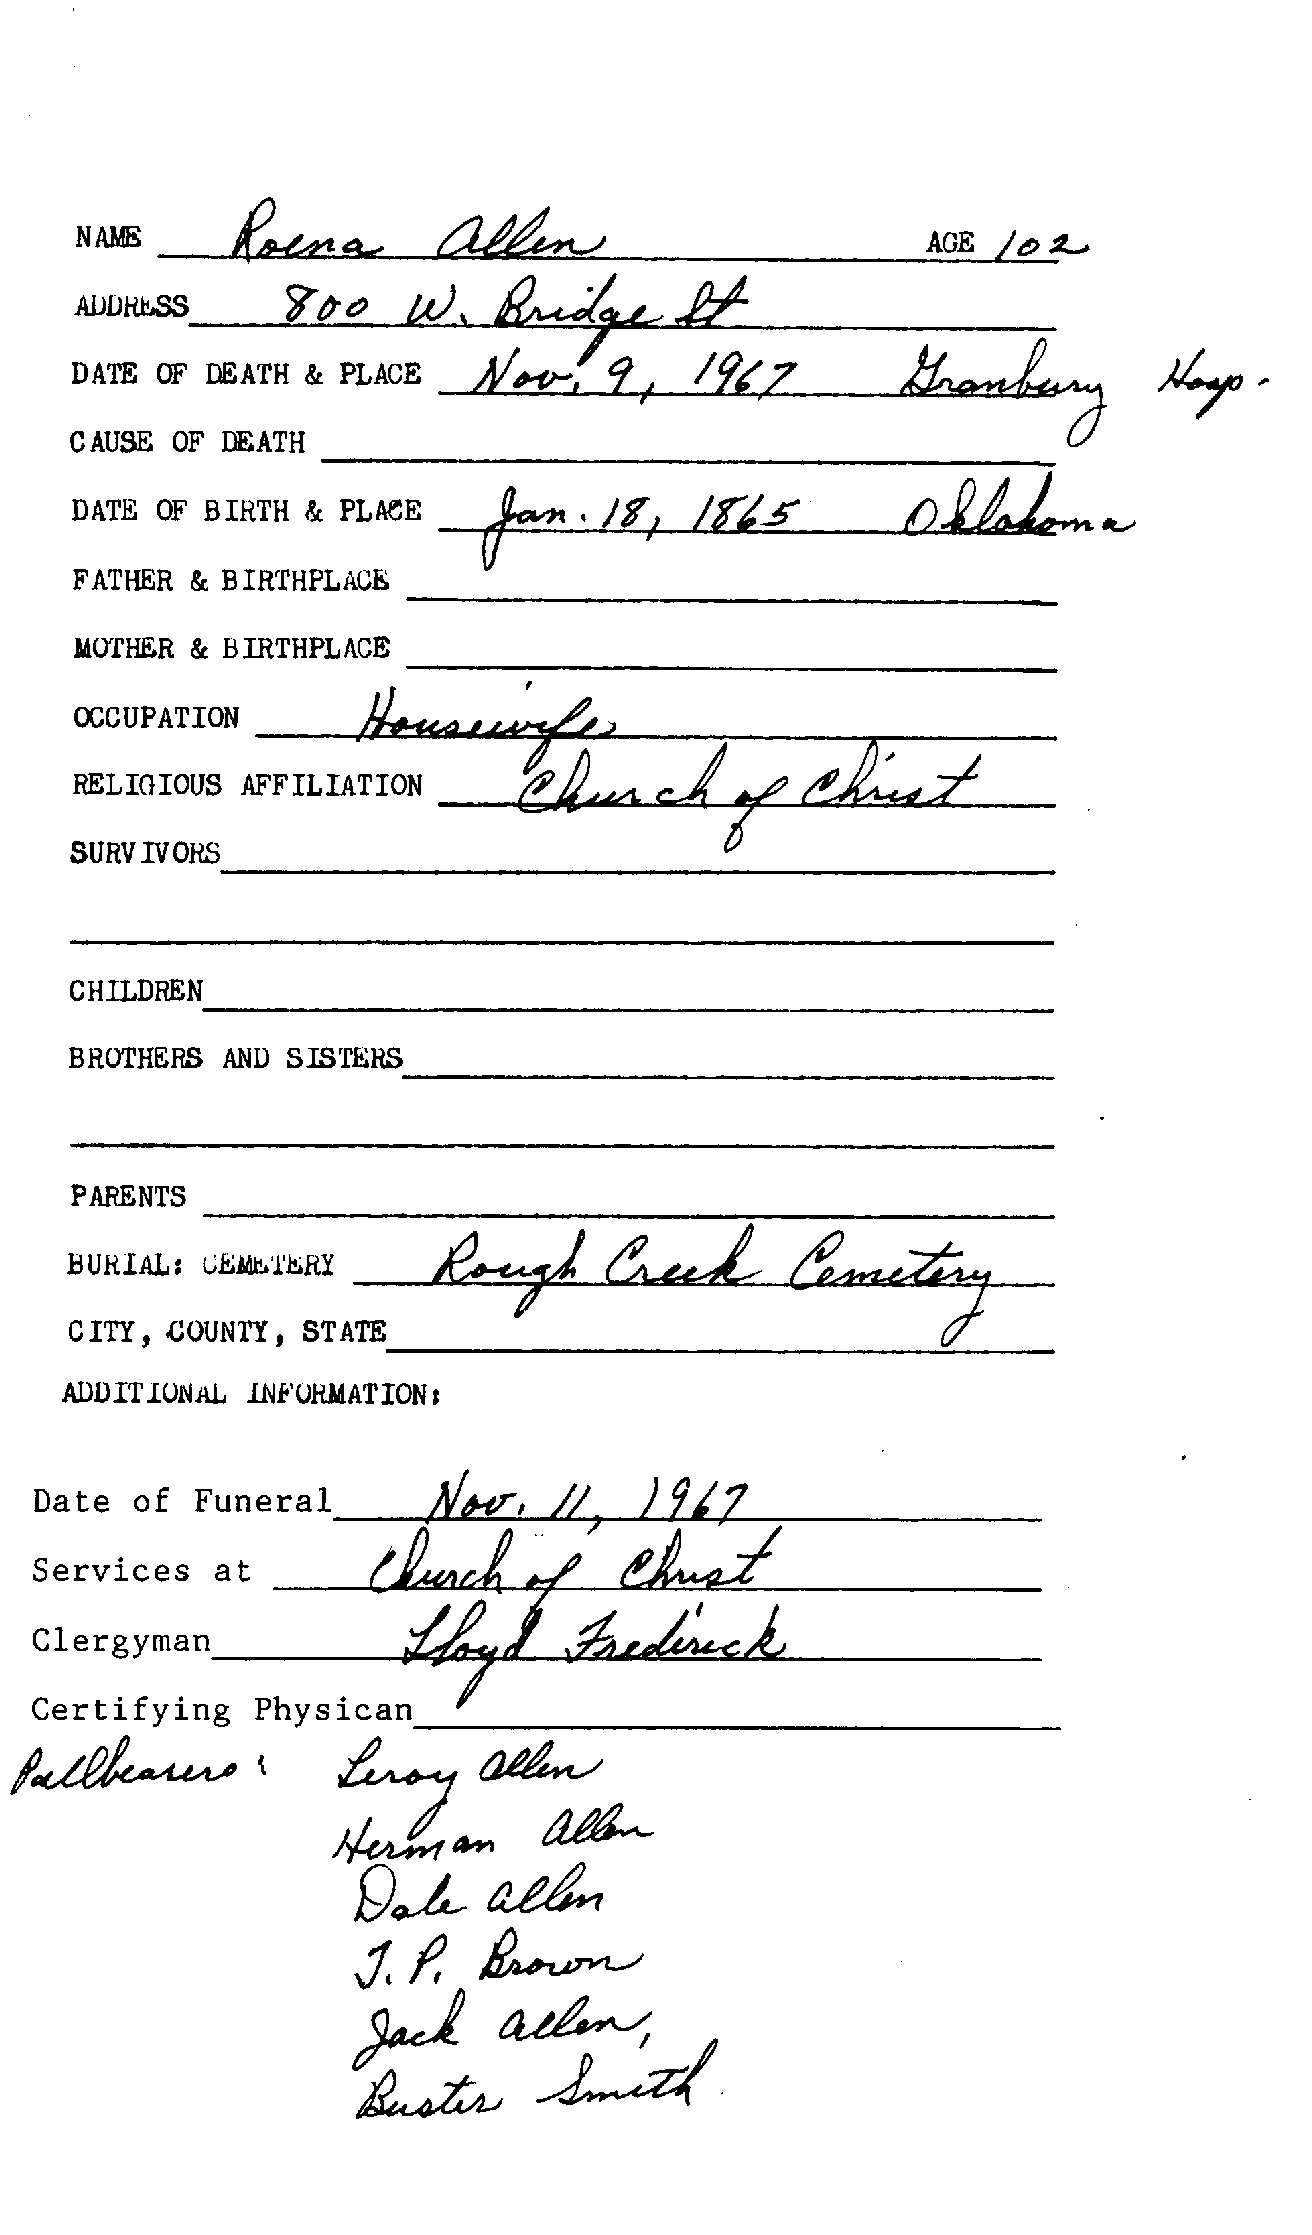 NAME Roena Allen AGE 102
ADDRESS 800 W. Bridge St
DATE OF DEATH & PLACE Nov. 9, 1967 Granbury Hosp.
CAUSE OF DEATH
DATE OF BIRTH & PLACE Jan. 18, 1865 Oklahoma
FATHER & BIRTHPLACE
MOTHER & BIRTHPLACE
OCCUPATION Housewife
RELIGIOUS AFFILIATION Church of Christ
SURVIVORS
CHILDREN
BROTHERS AND SISTERS
PARENTS
BURIAL: CEMETERY Rough Creek Cemetery
CITY, COUNTY, STATE
ADDITIONAL INFORMATION:
Date of Funeral Nov. 11, 1967
Services at Church of Christ
Clergyman Lloyd Frederick
Certifying Physican
Pallbearers: Leroy Allen
Herman Allen
Dale Allen
J. P. Brown
Jack Allen,
Buster Smith